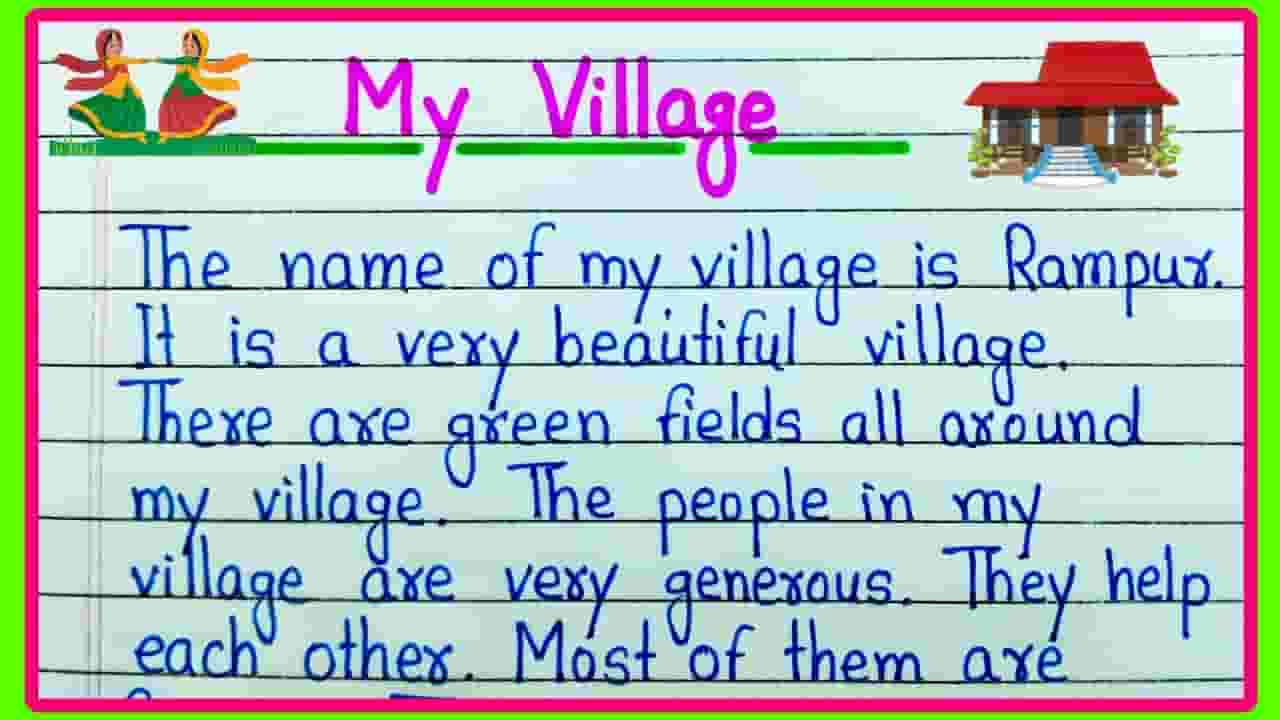 My Village
The name of my village is Rampur.
It is a very beautiful village.
There are green fields all around
my village. The people in my
village are very generous. They help
each other. Most of them are